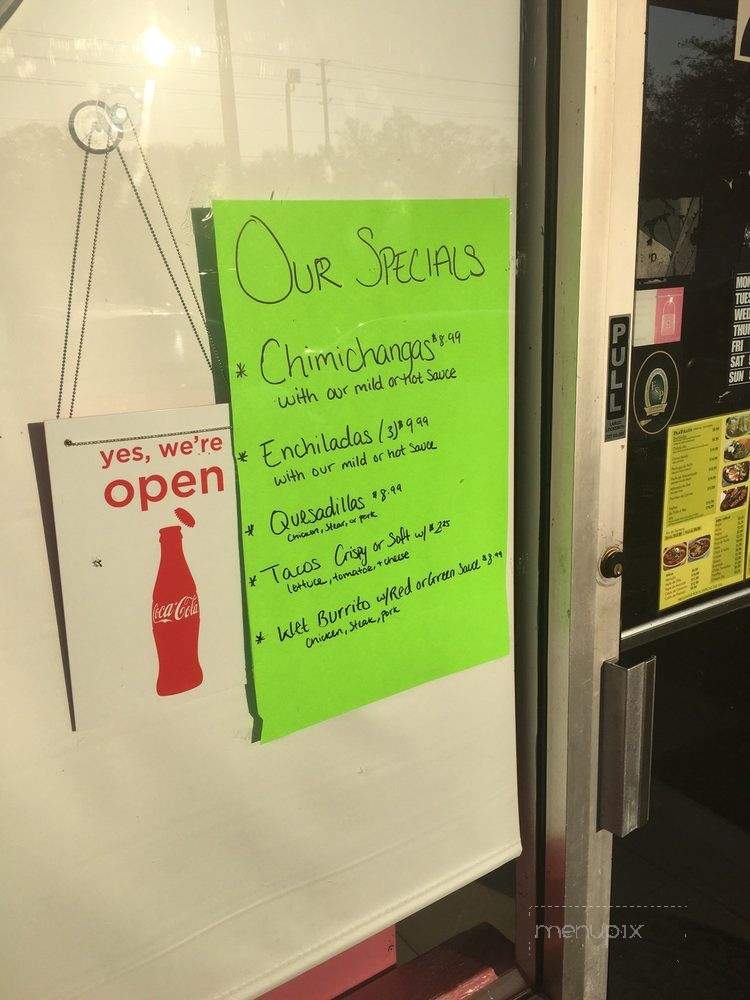 OUR SPECIALS
* Chimichangas $8.99
with our mild or Hot Sauce
* Enchiladas (3) $9.99
with our mild or hot Sauce
* Quesadillas $8.99
Chicken, Steak, or pork
* Tacos Crispy or Soft w/ $2.25
lettuce, tomatoe, + cheese
* Wet Burrito w/Red or Green Sauce $8.99
Chicken, Steak, pork
yes, we're
open
Coca-Cola
PULL
MON
TUES
WED
THU
FRI
SAT
SUN
menupix